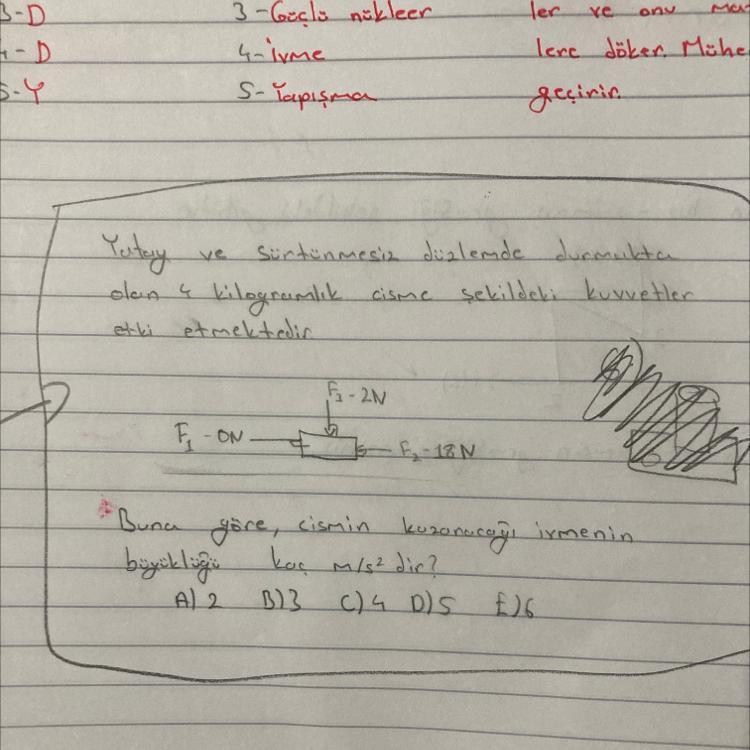 3-D 3-Güçlü nükleer ler ve onu
4-D 4-İvme lere döker. Mühe
5-Y 5-Yapışma geçirir.
Yatay ve sürtünmesiz düzlemde durmakta
olan 4 kilogramlık cisme şekildeki kuvvetler
etki etmektedir.
F₃-2N
F₁-0N F₂-18N
Buna göre, cismin kazanacağı ivmenin
büyüklüğü kaç m/s² dir?
A) 2 B) 3 C) 4 D) 5 E) 6